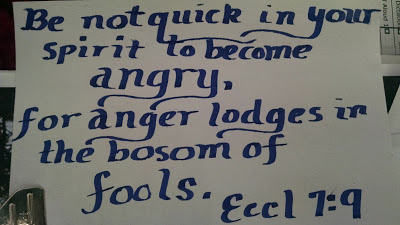 Be not quick in your
spirit to become
angry,
for anger lodges in
the bosom of
fools. Eccl 7:9